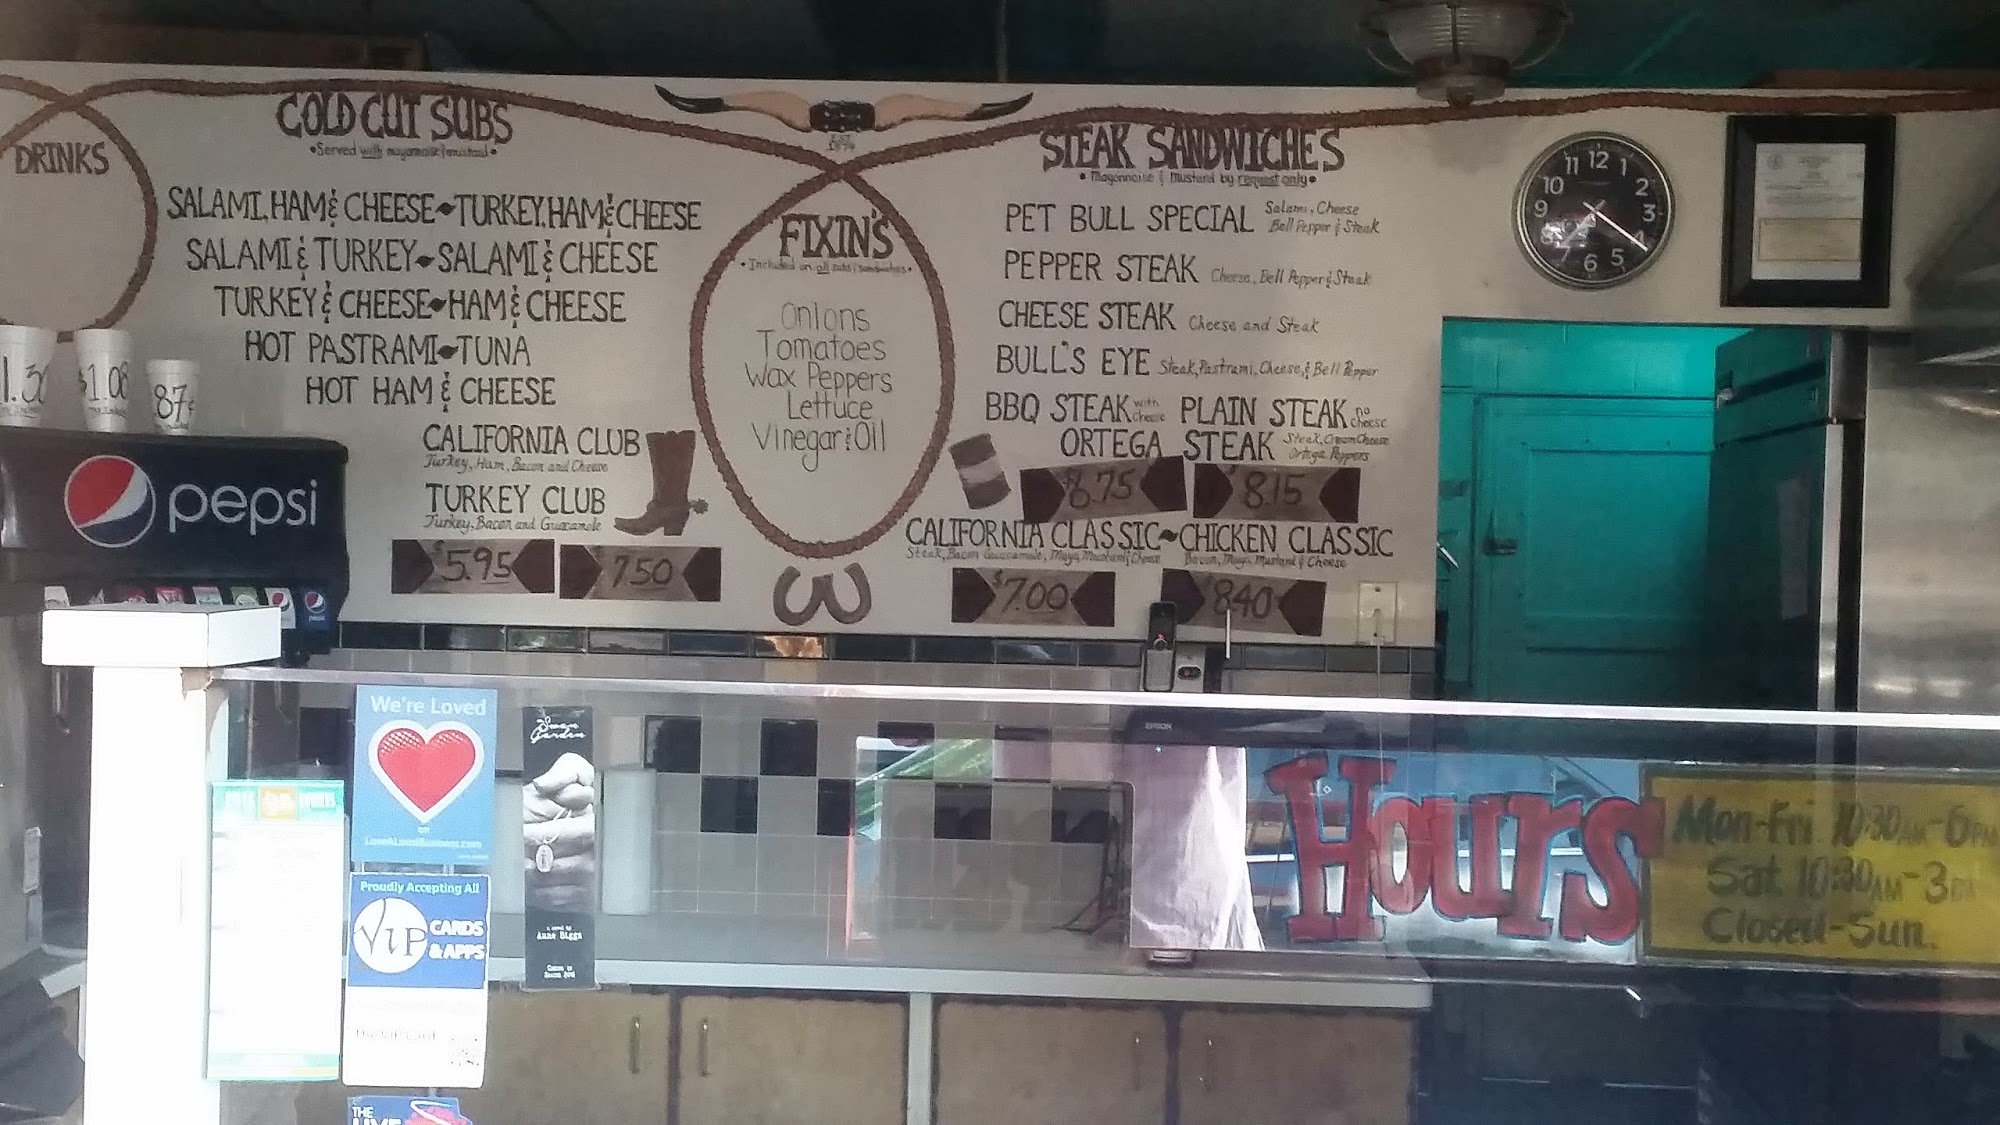 DRINKS
1.08
87¢
pepsi
COLD CUT SUBS
•Served with mayonnaise & mustard•
SALAMI, HAM & CHEESE • TURKEY, HAM & CHEESE
SALAMI & TURKEY • SALAMI & CHEESE
TURKEY & CHEESE • HAM & CHEESE
HOT PASTRAMI • TUNA
HOT HAM & CHEESE
CALIFORNIA CLUB
Turkey, Ham, Bacon and Cheese
TURKEY CLUB
Turkey, Bacon and Guacamole
$5.95
7.50
FIXIN'S
•Included on all subs/sandwiches•
Onions
Tomatoes
Wax Peppers
Lettuce
Vinegar & Oil
STEAK SANDWICHES
• Mayonnaise & Mustard by request only •
PET BULL SPECIAL Salami, Cheese
Bell Pepper & Steak
PEPPER STEAK Cheese, Bell Pepper & Steak
CHEESE STEAK Cheese and Steak
BULL'S EYE Steak, Pastrami, Cheese, & Bell Pepper
BBQ STEAK with Cheese PLAIN STEAK no cheese
ORTEGA STEAK Steak, Cream Cheese
Ortega Peppers
$6.75
$8.15
CALIFORNIA CLASSIC ~ CHICKEN CLASSIC
Steak, Bacon Guacamole, Mayo, Mustard & Cheese
Bacon, Mayo, Mustard & Cheese
$7.00
$8.40
12 1 2 3 4 5 6 7 8 9 10 11
EPSON
We're Loved
on
LoveALocalBusiness.com
Proudly Accepting All
VIP
CARDS
& APPS
The VIP Card
THE
Swan
Garden
a novel by
Anne Biggs
Hours
Mon-Fri 10:30AM-6PM
Sat 10:30AM-3PM
Closed-Sun.